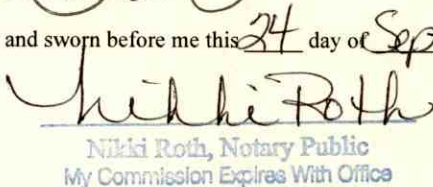 and sworn before me this 24 day of Sep
Nikki Roth
Nikki Roth, Notary Public
My Commission Expires With Office